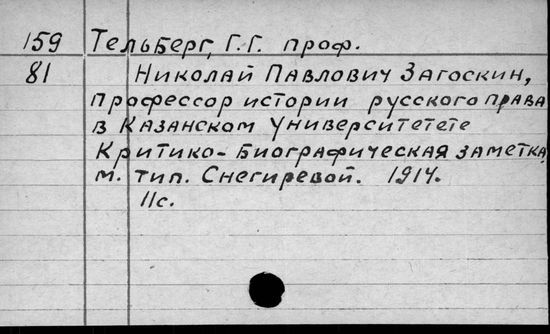 159 Тельберг, Г.Г. проф.
81 Николай Павлович Загоскин,
профессор истории русского права
в Казанском Университетете
Критико-Биографическая заметка,
м. тип. Снегиревой. 1914.
11с.